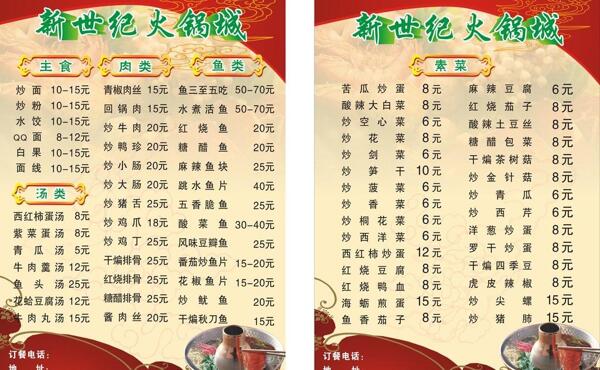 新世纪火锅城
主食
炒面 10-15元
炒粉 10-15元
水饺 10-15元
QQ面 8-12元
白果 10-15元
面线 10-15元
汤类
西红柿蛋汤 8元
紫菜蛋汤 8元
青瓜汤 5元
牛肉羹汤 12元
鱼头汤 25元
花蛤豆腐汤 12元
牛肉丸汤 15元
肉类
青椒肉丝 15元
回锅肉 15元
炒牛肉 20元
炒鸭珍 20元
炒小肠 20元
炒大肠 20元
炒猪舌 25元
炒鸡爪 18元
炒鸡丁 25元
干煸排骨 25元
红烧排骨 25元
糖醋排骨 20元
酱肉丝 20元
鱼类
鱼三至五吃 50-70元
水煮活鱼 50-70元
红烧鱼 20元
糖醋鱼 20元
麻辣鱼块 25元
跳水鱼片 40元
五香脆鱼 25元
酸菜鱼 30-40元
风味豆瓣鱼 25元
番茄炒鱼片 15-20元
花椒鱼片 15-20元
炒鱿鱼 20元
干煸秋刀鱼 15元
订餐电话：
地 址：
新世纪火锅城
素菜
苦瓜炒蛋 8元
酸辣大白菜 8元
炒空心菜 6元
炒花菜 8元
炒剑菜 6元
炒笋干 10元
炒菠菜 6元
炒香菜 6元
炒桐花菜 6元
炒西洋菜 6元
西红柿炒蛋 12元
红烧豆腐 8元
红烧鸭血 8元
海蛎煎蛋 15元
鱼香茄子 8元
麻辣豆腐 6元
红烧茄子 8元
酸辣土豆丝 8元
糖醋包菜 8元
干煸茶树菇 8元
炒金针菇 8元
炒青瓜 6元
炒西芹 6元
洋葱炒蛋 8元
罗干炒蛋 8元
干煸四季豆 8元
虎皮辣椒 8元
炒尖螺 15元
炒猪肺 15元
订餐电话：
地 址：